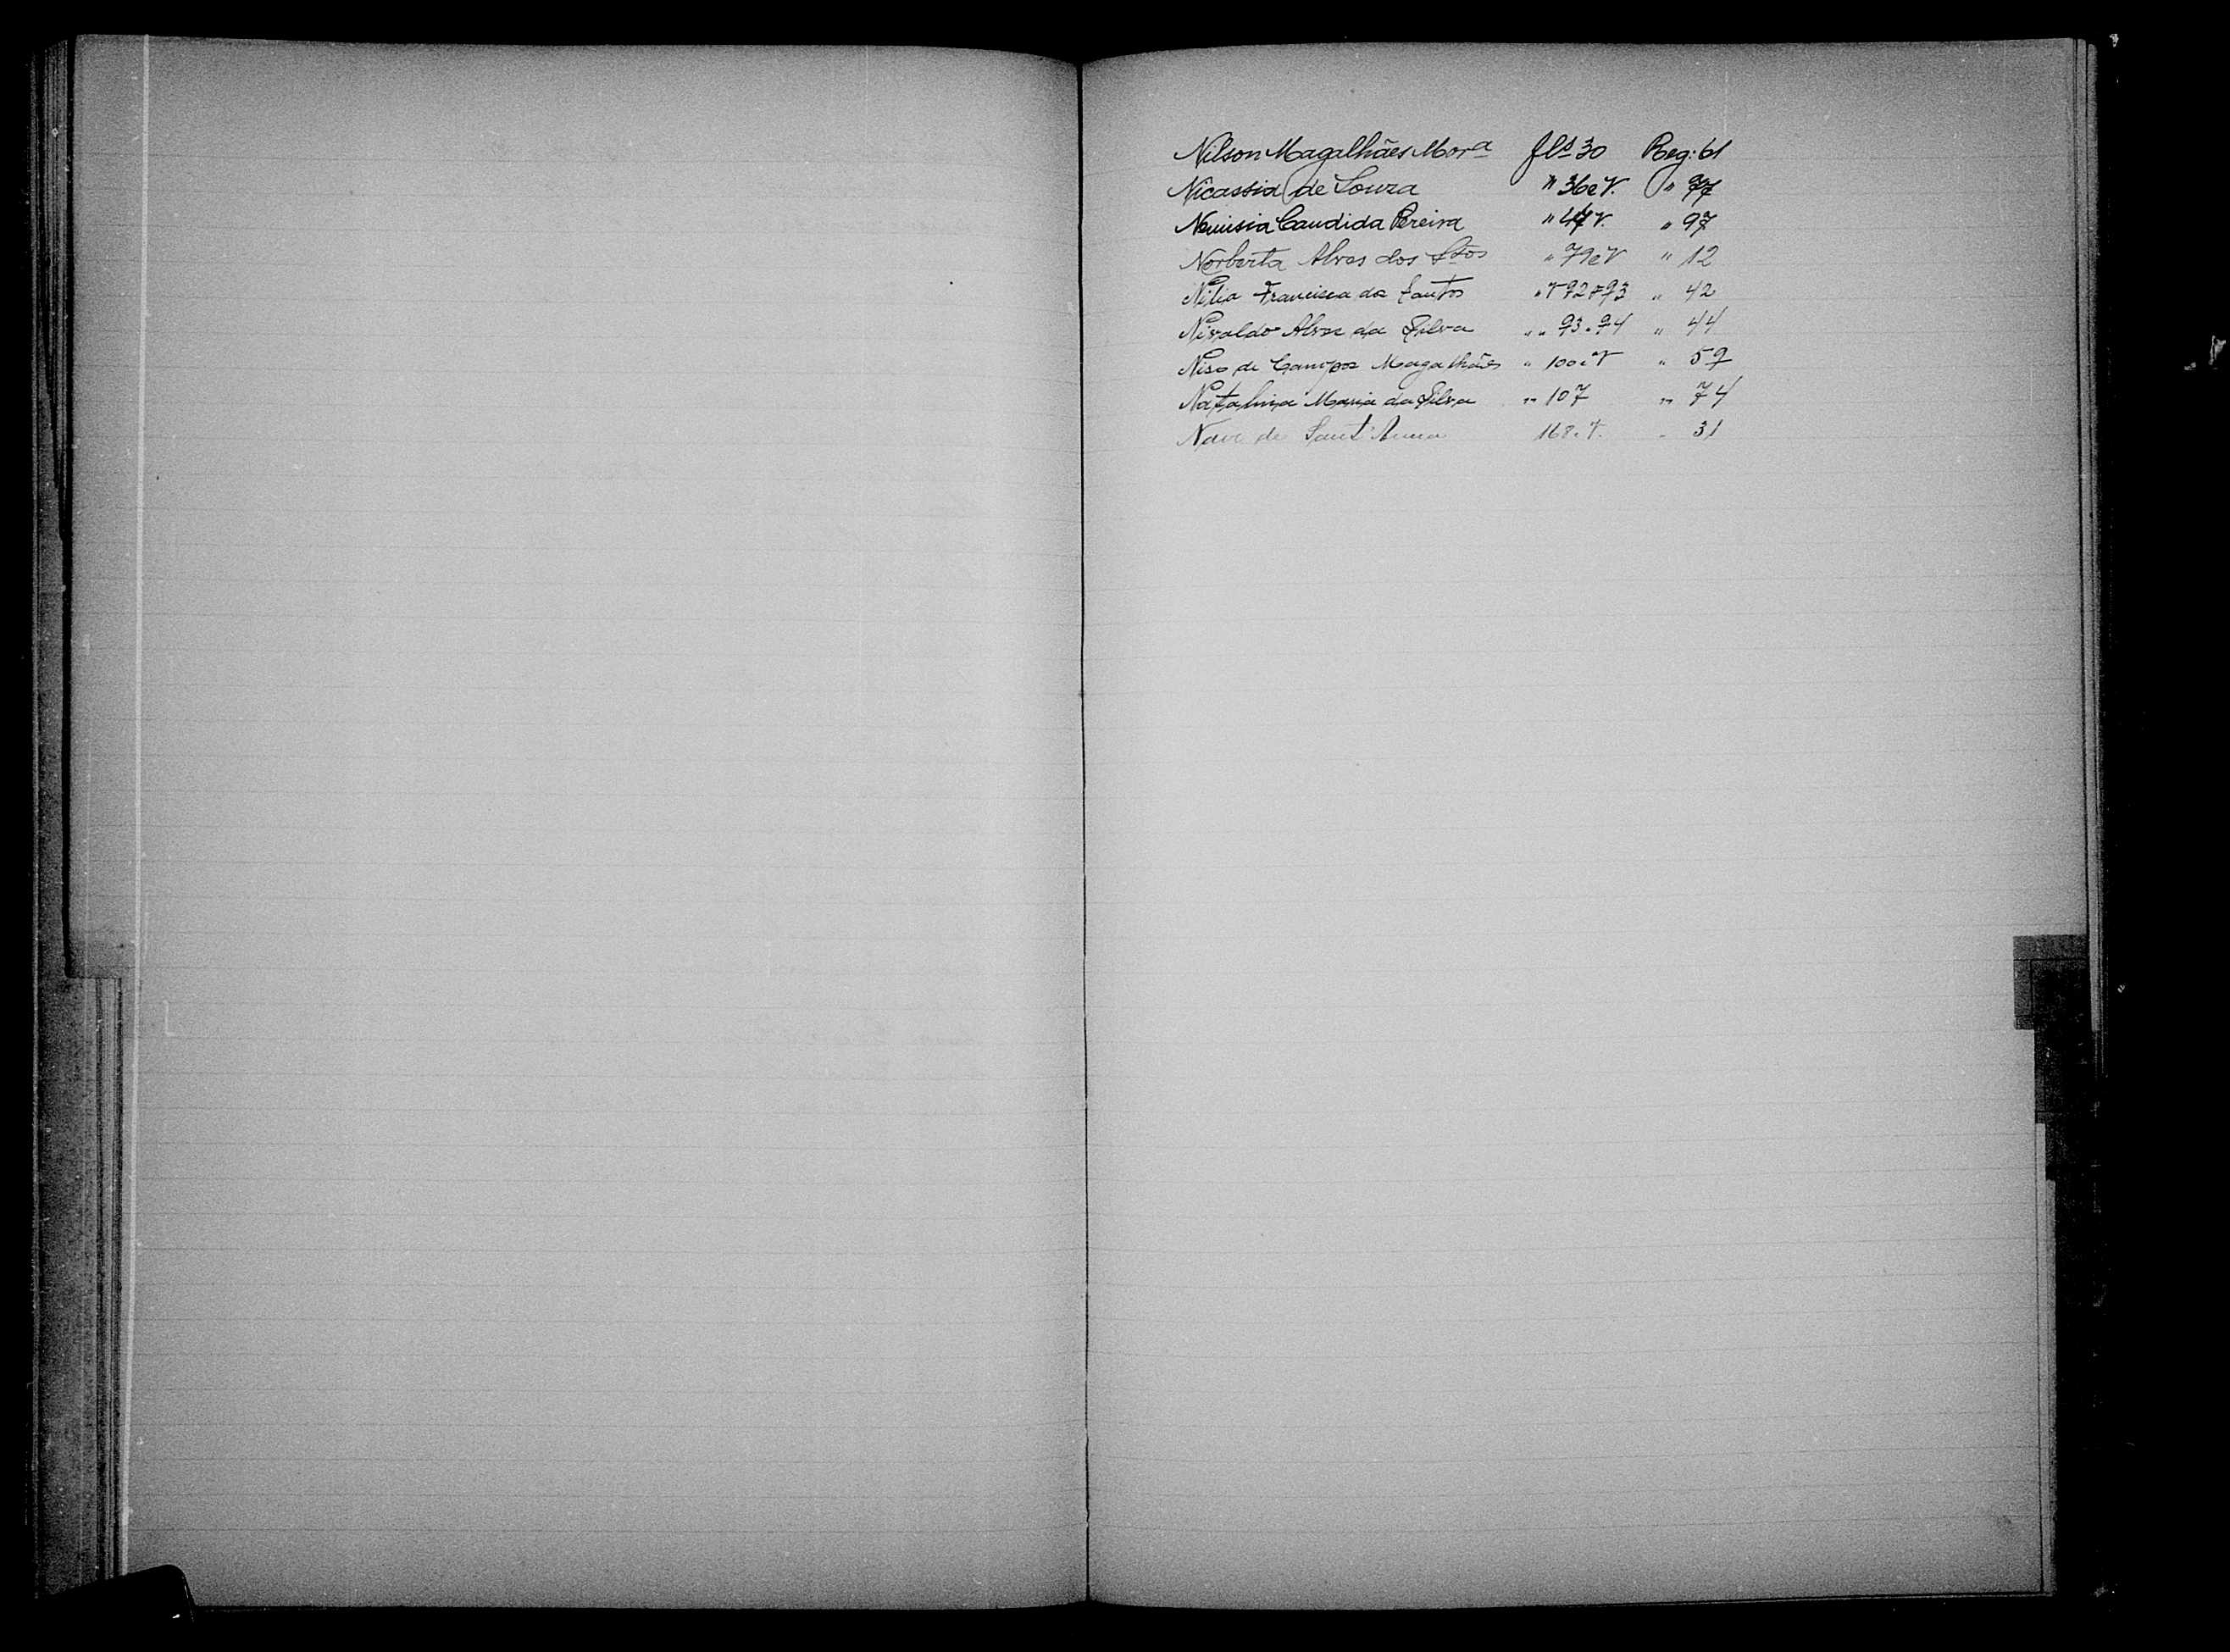 Nilson Magalhães Morª fls 30 Reg: 61
Nicassia de Souza " 36 e V. " 77
Neuisia Candida Pereira " 47 V. " 97
Norberta Alves dos Stos " 79 e V " 12
Nilia Francisca dos Santos " V 92 e 93 " 42
Nivaldo Alves da Silva " " 93 e 94 " 44
Niso de Campos Magalhães " 100 e V " 59
Natalina Maria da Silva " 107 " 74
de Sant'Anna 168 e V. " 31